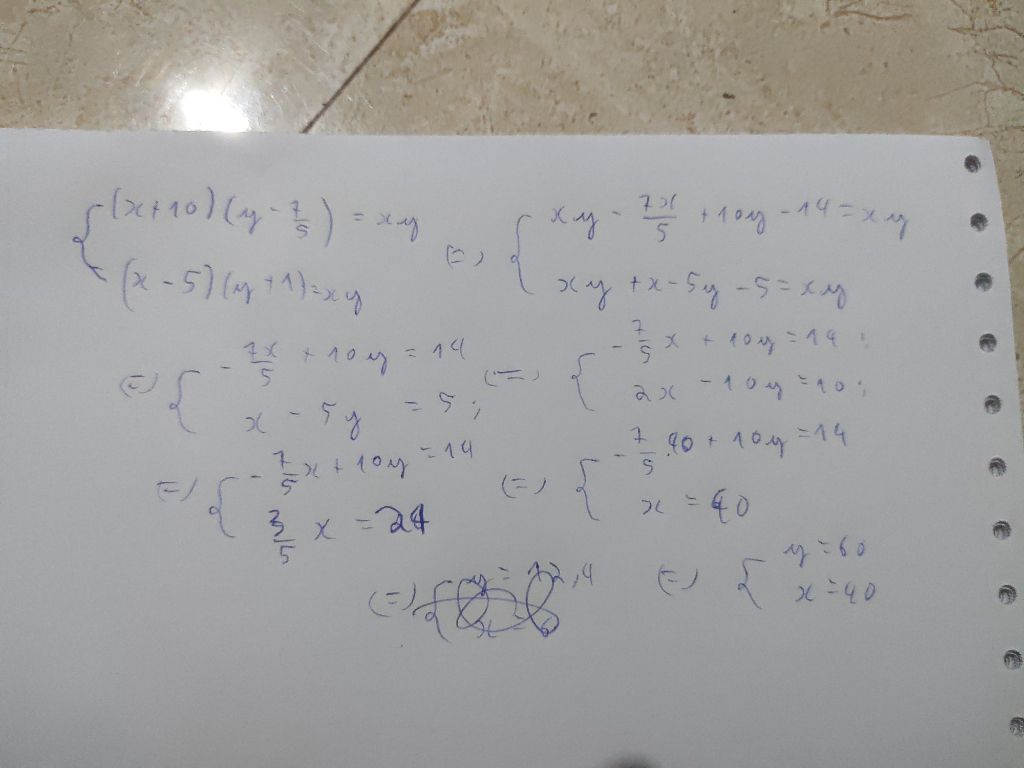 { (x+10)(y - 7/5) = xy
(x - 5)(y + 1) = xy
<=> { xy - 7x/5 + 10y - 14 = xy
xy + x - 5y - 5 = xy
<=> { - 7x/5 + 10y = 14
x - 5y = 5;
<=> { - 7/5 x + 10y = 14;
2x - 10y = 10;
<=> { - 7/5 x + 10y = 14
3/5 x = 24
<=> { - 7/5 . 40 + 10y = 14
x = 40
<=> { y = 60
x = 40